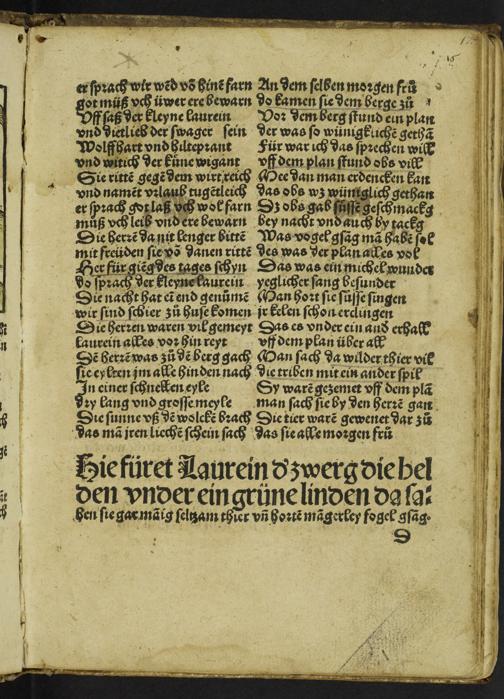 er sprach wir wēd vō hinē farn
got müß vch üwer ere bewarn
Vff saß der kleyne laurein
vnd dietlieb der swager sein
Wolffhart vnd hilteprant
vnd witich der küne wigant
Sie rittē gegē dem wirt reich
vnd namēt vrlaub tugētleich
er sprach got laß vch wol farn
müß vch leib vnd ere bewarn
Die herrē da nit lenger bittē
mit freüden sie vō danen rittē
Her für giēg des tages schyn
do sprach der kleyne laurein
Die nacht hat eā end genūmē
wir sind schier zū huse komen
Die herren waren vil gemeyt
laurein alles vor hin reyt
Dē herrē was zū dē berg gach
sie eylten jm alle hinden nach
In einer schnellen eyle
dry lang vnd grosse meyle
Die sunne vß dē wolckē brach
das mā jren liechē schein sach
An dem selben morgen frü
do kamen sie dem berge zū
Vor dem berg stund ein plan
der was so wünigklichē gethā
Für war ich das sprechen will
vff dem plan stund obs vill
Mee dan man erdencken kan
das obs wz wüniglich gethan
Dz obs gab süssē geschmackg
bey nacht vnd auch by tackg
Was vogel gsāg mā habē sol
des was der plan alles vol
Das was ein michel wunder
yeglicher sang besunder
Man hort sie süsse singen
jr kelen schon erclingen
Das es vnder ein and erhall
vff dem plan über all
Man sach da wilder thier vil
die triben mit ein ander spil
Sy warē gezemet vff dem plā
man sach sie by den herrē gan
Die tier warē gewenet dar zū
das sie alle morgen frü
Hie füret Laurein d' zwerg die hel
den vnder ein grüne linden da sa⸗
hen sie gar māig seltzam thier vñ hortē māgerley fogel gsāg.